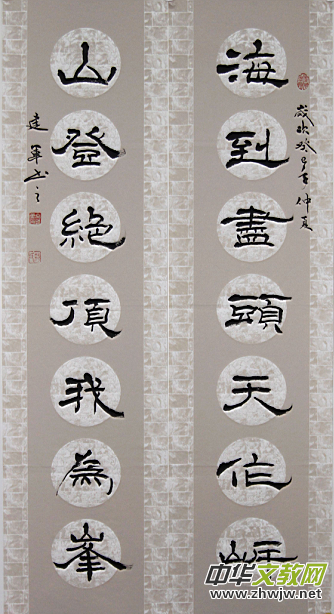 歲次癸巳年仲夏
海到盡頭天作岸
山登絶頂我為峯
建軍书之
中华文教网
www.zhwjw.net